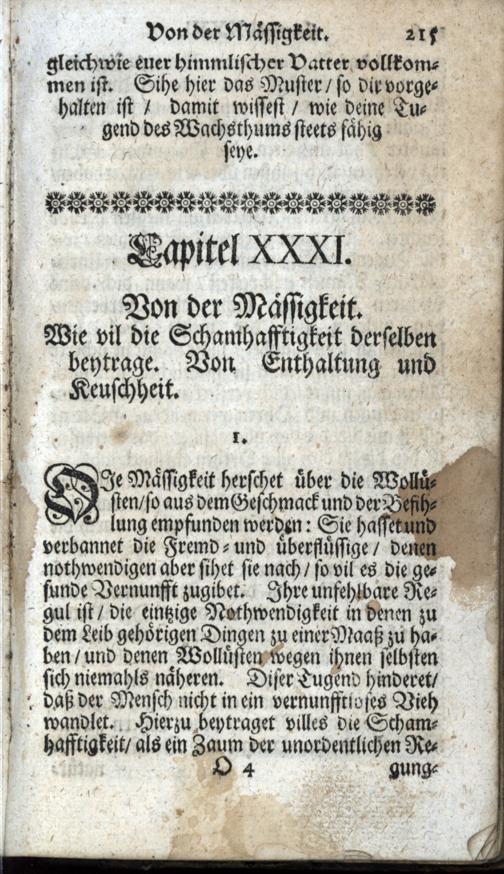 Von der Mässigkeit. 215
gleichwie euer himmlischer Vatter vollkom-
men ist. Sihe hier das Muster / so dir vorge-
halten ist / damit wissest / wie deine Tu-
gend des Wachsthums steets fähig
seye.
Capitel XXXI.
Von der Mässigkeit.
Wie vil die Schamhafftigkeit derselben
beytrage. Von Enthaltung und
Keuschheit.
1.
DJe Mässigkeit herschet über die Wollü-
sten/so aus dem Geschmack und der Befih-
lung empfunden werden: Sie hasset und
verbannet die Fremd- und überflüssige / denen
nothwendigen aber sihet sie nach / so vil es die ge-
sunde Vernunfft zugibet. Ihre unfehlbare Re-
gul ist / die eintzige Nothwendigkeit in denen zu
dem Leib gehörigen Dingen zu einer Maaß zu ha-
ben / und denen Wollüsten wegen ihnen selbsten
sich niemahls näheren. Diser Tugend hinderet/
daß der Mensch nicht in ein vernunfftloses Vieh
wandlet. Hierzu beytraget villes die Scham-
hafftigkeit/ als ein Zaum der unordentlichen Re-
O 4 gung-